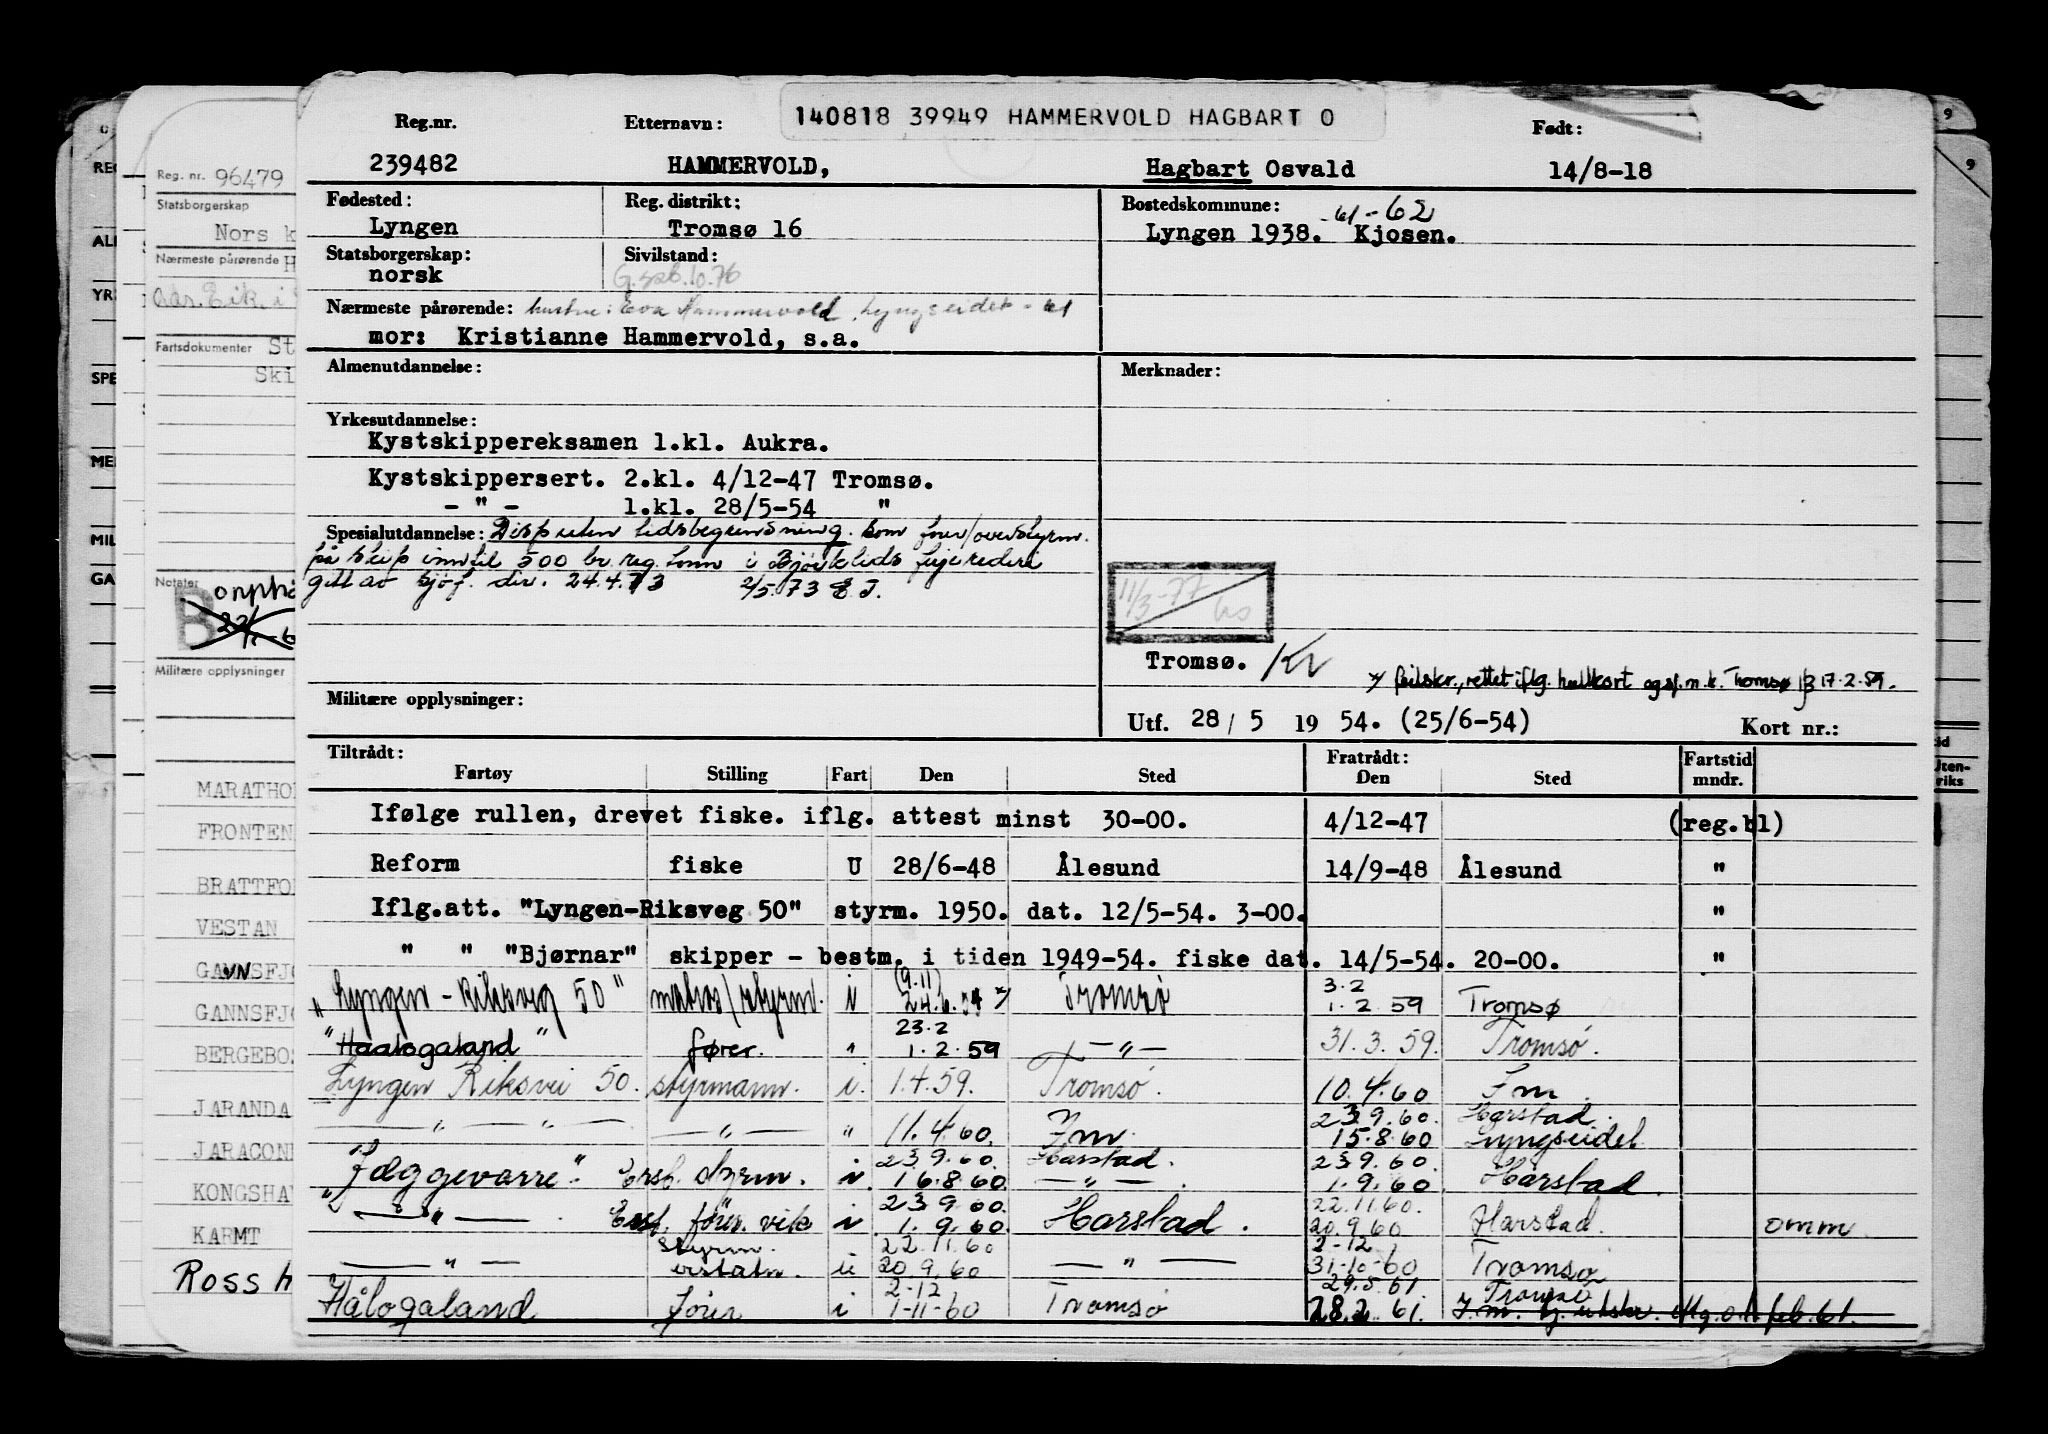 140818 39949 HAMMERVOLD HAGBART O
Reg.nr. Etternavn: Født:
239482 HAMMERVOLD, Hagbart Osvald 14/8-18
Fødested: Reg. distrikt: Bostedskommune: -61-62
Lyngen Tromsø 16 Lyngen 1938. Kjosen.
Statsborgerskap: Sivilstand:
norsk
Nærmeste pårørende: hustru: Eva Hammervold, Lyngseidet - 61
mor: Kristianne Hammervold, s.a.
Almenutdannelse: Merknader:
Yrkesutdannelse:
Kystskippereksamen 1.kl. Aukra.
Kystskippersert. 2.kl. 4/12-47 Tromsø.
- " - 1.kl. 28/5-54 "
Spesialutdannelse: Disp uten tidsbegrensning som fører/overstyrm.
på skip inntil 500 br. reg. tonn i Bjørklids fergerederi
gitt av Sjøf. dir. 24.4.73 2/5.73
11/3-77
Tromsø.
x) feilskr., rettet iflg. hullkort og sj.m.k. Tromsø 17.2.59.
Militære opplysninger: Utf. 28/5 1954. (25/6-54) Kort nr.:
Tiltrådt: Fratrådt: Fartstid
Fartøy Stilling Fart Den Sted Den Sted mndr.
Ifølge rullen, drevet fiske. iflg. attest minst 30-00. 4/12-47 (reg.bl)
Reform fiske U 28/6-48 Ålesund 14/9-48 Ålesund "
Iflg.att. "Lyngen-Riksveg 50" styrm. 1950. dat. 12/5-54. 3-00. "
" " "Bjørnar" skipper - bestm. i tiden 1949-54. fiske dat. 14/5-54. 20-00. "
(9.11) 3.2
"Lyngen - Riksveg 50" matros/styrm. i 24.6.54 x) Tromsø 1.2.59 Tromsø
23.2
"Haalogaland" fører. " 1.2.59 - " - 31.3.59. Tromsø.
Lyngen Riksvei 50. styrmann. i. 1.4.59. Tromsø. 10.4.60 Im.
23.9.60. Harstad.
- " - " - - " - " 11.4.60. Im. 15.8.60 Lyngseidet
23.9.60. Harstad. 23.9.60.
"Jæggevarre". Erst. styrm. i. 16.8.60. - " - . 1.9.60. Harstad.
23.9.60 22.11.60.
" - " - . fører. vik i 1.9.60. Harstad. 20.9.60 Harstad. omm
styrm. 22.11.60 2-12
- " - erstatn. ii 20.9.60 - " - 31-10-60 Tromsø
2-12 29.5.61 Tromsø
Hålogaland fører i 1-11-60 Tromsø 28.2.61. I.m. feb. 61.
Reg. nr. 96479
Statsborgerskap
Norsk
Nærmeste pårørende H
Fartsdokumenter St
Ski
Notater
B
22/
Militære opplysninger
MARATHO
FRONTEN
BRATTFO
VESTAN
GAVNSFJO
GANNSFJO
BERGEBOS
JARANDA
JARACON
KONGSHA
KARMT
Ross H
REG
ALM
YR
SPE
MEI
MIL
GA
9
9
tid
Uten-
riks